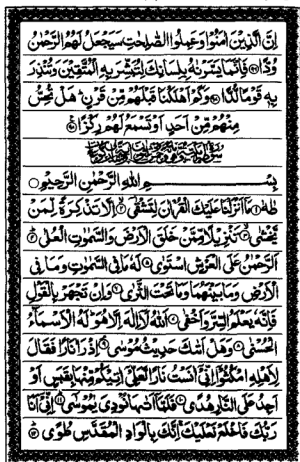 اِنَّ الَّذِيْنَ اٰمَنُوْا وَعَمِلُوا الصّٰلِحٰتِ سَيَجْعَلُ لَهُمُ الرَّحْمٰنُ
وُدًّا ۝ فَاِنَّمَا يَسَّرْنٰهُ بِلِسَانِكَ لِتُبَشِّرَ بِهِ الْمُتَّقِيْنَ وَتُنْذِرَ
بِهٖ قَوْمًا لُّدًّا ۝ وَكَمْ اَهْلَكْنَا قَبْلَهُمْ مِّنْ قَرْنٍ هَلْ تُحِسُّ
مِنْهُمْ مِّنْ اَحَدٍ اَوْ تَسْمَعُ لَهُمْ رِكْزًا ۝
بِسْمِ اللهِ الرَّحْمٰنِ الرَّحِيْمِ ۝
طٰهٰ ۝ مَا اَنْزَلْنَا عَلَيْكَ الْقُرْاٰنَ لِتَشْقٰى ۝ اِلَّا تَذْكِرَةً لِّمَنْ
يَّخْشٰى ۝ تَنْزِيْلًا مِّمَّنْ خَلَقَ الْاَرْضَ وَالسَّمٰوٰتِ الْعُلٰى ۝
اَلرَّحْمٰنُ عَلَى الْعَرْشِ اسْتَوٰى ۝ لَهٗ مَا فِى السَّمٰوٰتِ وَمَا فِى
الْاَرْضِ وَمَا بَيْنَهُمَا وَمَا تَحْتَ الثَّرٰى ۝ وَاِنْ تَجْهَرْ بِالْقَوْلِ
فَاِنَّهٗ يَعْلَمُ السِّرَّ وَاَخْفٰى ۝ اَللهُ لَا اِلٰهَ اِلَّا هُوَ لَهُ الْاَسْمَاءُ
الْحُسْنٰى ۝ وَهَلْ اَتٰكَ حَدِيْثُ مُوْسٰى ۝ اِذْ رَاٰ نَارًا فَقَالَ
لِاَهْلِهِ امْكُثُوْا اِنِّىْ اٰنَسْتُ نَارًا لَّعَلِّىْ اٰتِيْكُمْ مِّنْهَا بِقَبَسٍ اَوْ
اَجِدُ عَلَى النَّارِ هُدًى ۝ فَلَمَّا اَتٰىهَا نُوْدِىَ يٰمُوْسٰى ۝ اِنِّىْ اَنَا
رَبُّكَ فَاخْلَعْ نَعْلَيْكَ اِنَّكَ بِالْوَادِ الْمُقَدَّسِ طُوًى ۝